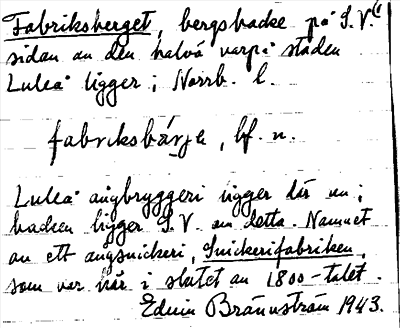 Fabriksberget, bergsbacke på S.V.
sidan av den halvö varpå staden
Luleå ligger i Norrb. l.
fabriksbärje, bf. n.
Luleå ångbryggeri ligger där nu;
backen ligger S.V. om detta. Namnet
av ett ångsnickeri, Snickerifabriken,
som var här i slutet av 1800-talet.
Edvin Brännström 1943.